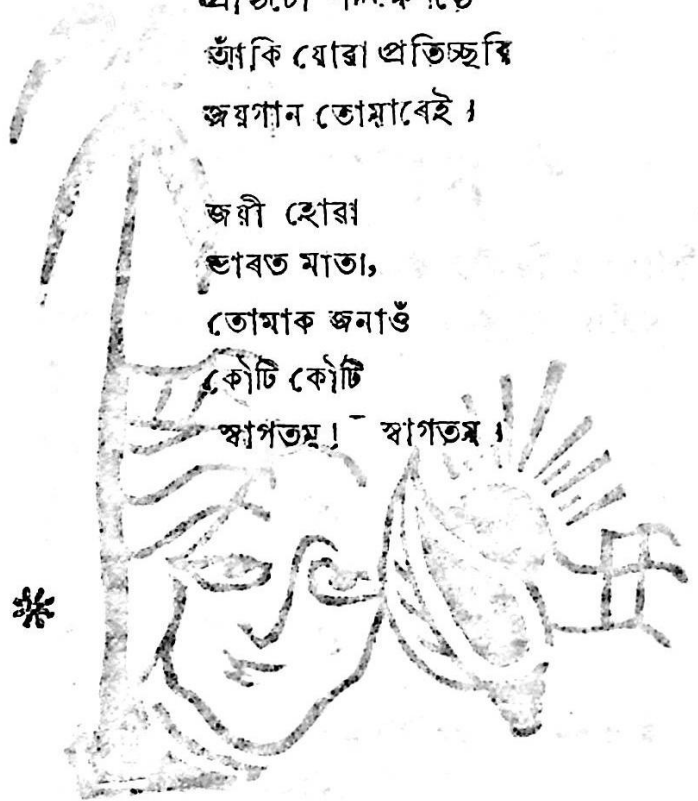 আঁকি যোৱা প্ৰতিচ্ছবি
জয়গান তোমাৰেই।
জয়ী হোৱা
ভাৰত মাতা,
তোমাক জনাওঁ
কৌটি কৌটি
স্বাগতম্! - স্বাগতম্।